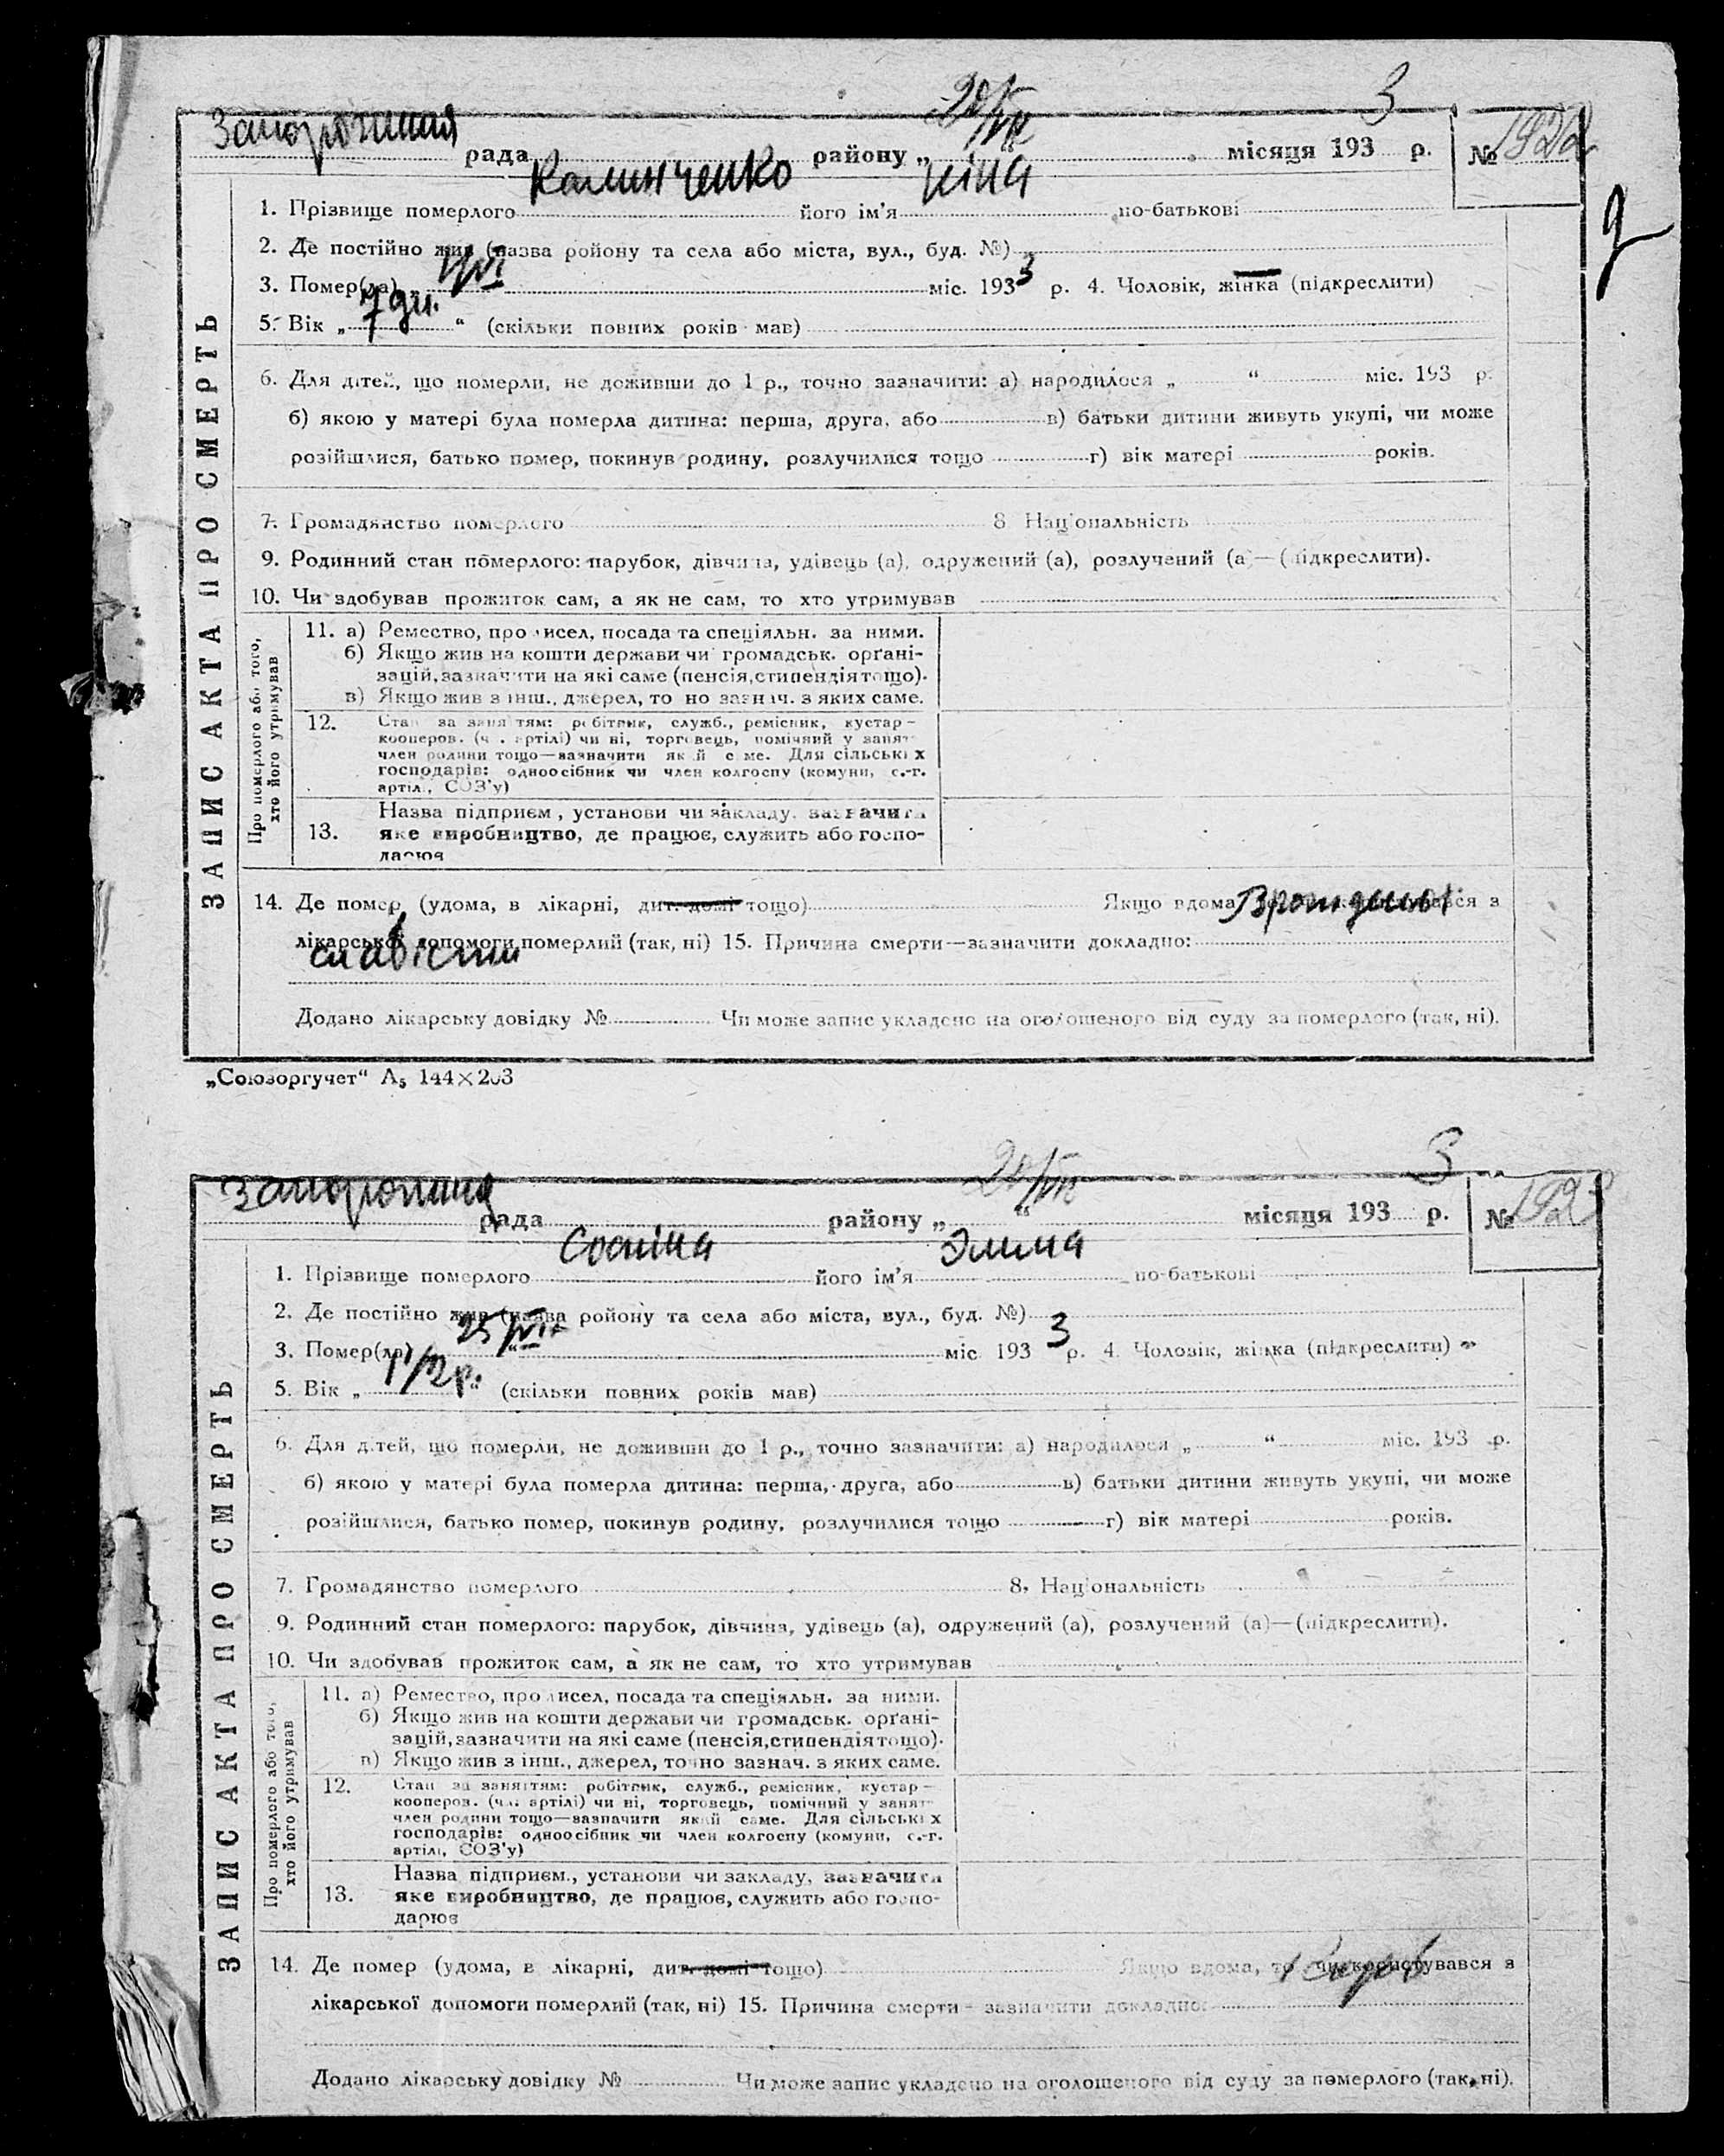 Запорожская 28/VIII 3
рада району „ “ місяця 193 р. № 1922
Калинченко Ніна
1. Прізвище померлого його ім’я по-батькові
2. Де постійно жив (назва ройону та села або міста, вул., буд. №)
3. Помер(ла) „ міс. 1933 р. 4. Чоловік, жінка (підкреслити)
7 дн.
5. Вік „ “ (скільки повних років мав)
6. Для дітей, що померли, не доживши до 1 р., точно зазначити: а) народилося „ “ міс. 193 р.
б) якою у матері була померла дитина: перша, друга, або в) батьки дитини живуть укупі, чи може
розійшлися, батько помер, покинув родину, розлучилися тощо г) вік матері років.
7. Громадянство померлого 8 Національність
9. Родинний стан померлого: парубок, дівчина, удівець (а), одружений (а), розлучений (а)—(підкреслити).
10. Чи здобував прожиток сам, а як не сам, то хто утримував
ЗАПИС АКТА ПРО СМЕРТЬ
Про померлого або того,
хто його утримував
11. а) Ремество, промисел, посада та спеціяльн. за ними.
б) Якщо жив на кошти держави чи громадськ. орґані-
зацій, зазначити на які саме (пенсія, стипендія тощо).
в) Якщо жив з інш., джерел, точно зазнач. з яких саме.
12. Стан за заняттям: робітник, служб., ремісник, кустар—
кооперов. (чл. артілі) чи ні, торговець, помічний у занят-
член родини тощо—зазначити який саме. Для сільських
господарів: одноосібник чи член колгоспу (комуни, с.-г.
артілі, СОЗ’у)
13. Назва підприєм., установи чи закладу, зазначити
яке виробництво, де працює, служить або госпо-
дарює
14. Де помер (удома, в лікарні, дит. домі тощо) Якщо вдома
лікарської допомоги померлий (так, ні) 15. Причина смерти—зазначити докладно:
слабістю
Додано лікарську довідку № Чи може запис укладено на оголошеного від суду за померлого (так, ні).
„Союзоргучет“ А₅ 144×203
3
рада району „ “ місяця 193 р. № 1923
1. Прізвище померлого його ім’я по-батькові
2. Де постійно жив (назва ройону та села або міста, вул., буд. №)
25/VII
3. Помер(ла) „ “ міс 193 3 р. 4. Чоловік, жінка (підкреслити)
1 1/2 р.
5. Вік „ “ (скільки повних років мав)
6. Для дітей, що померли, не доживши до 1 р., точно зазначити: а) народилося „ “ міс. 193 р.
б) якою у матері була померла дитина: перша, друга, або в) батьки дитини живуть укупі, чи може
розійшлися, батько помер, покинув родину, розлучилися тощо г) вік матері років.
7. Громадянство померлого 8. Національність
9. Родинний стан померлого: парубок, дівчина, удівець (а), одружений (а), розлучений (а)—(підкреслити).
10. Чи здобував прожиток сам, а як не сам, то хто утримував
ЗАПИС АКТА ПРО СМЕРТЬ
Про померлого або того,
хто його утримував
11. а) Ремество, промисел, посада та спеціяльн. за ними.
б) Якщо жив на кошти держави чи громадськ. орґані-
зацій, зазначити на які саме (пенсія, стипендія тощо).
в) Якщо жив з інш., джерел, точно зазнач. з яких саме.
12. Стан за заняттям: робітник, служб., ремісник, кустар—
кооперов. (чл. артілі) чи ні, торговець, помічний у занят-
член родини тощо—зазначити який саме. Для сільських
господарів: одноосібник чи член колгоспу (комуни, с.-г.
артілі, СОЗ’у)
13. Назва підприєм., установи чи закладу, зазначити
яке виробництво, де працює, служить або госпо-
дарює
14. Де помер (удома, в лікарні, дит. домі тощо) Якщо вдома, то чи користувався з
лікарської допомоги померлий (так, ні) 15. Причина смерти—зазначити докладно:
Додано лікарську довідку № Чи може запис укладено на оголошеного від суду за померлого (так, ні).